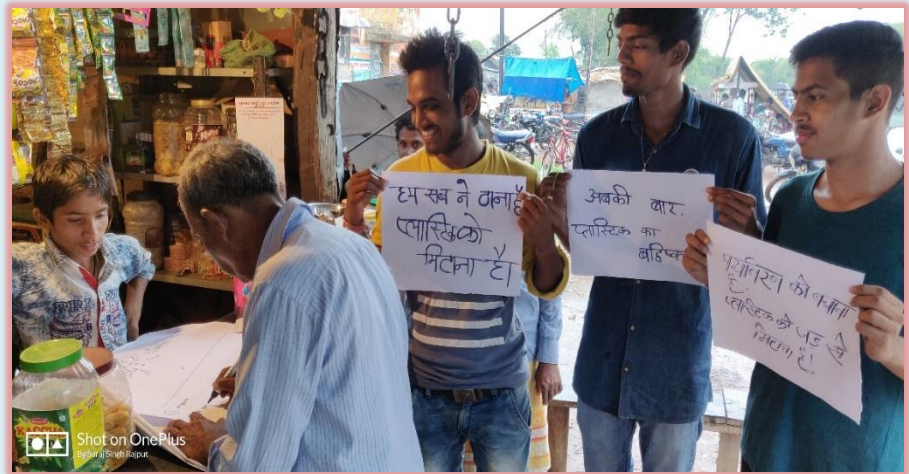 हम सब ने ठाना है
प्लास्टिक को
मिटाना है।
अबकी बार,
प्लास्टिक का
बहिष्का
पर्यावरण को बचाना
है,
प्लास्टिक को जड़ से
मिटाना है।
KACCHA
Shot on OnePlus
By Suraj Singh Rajput